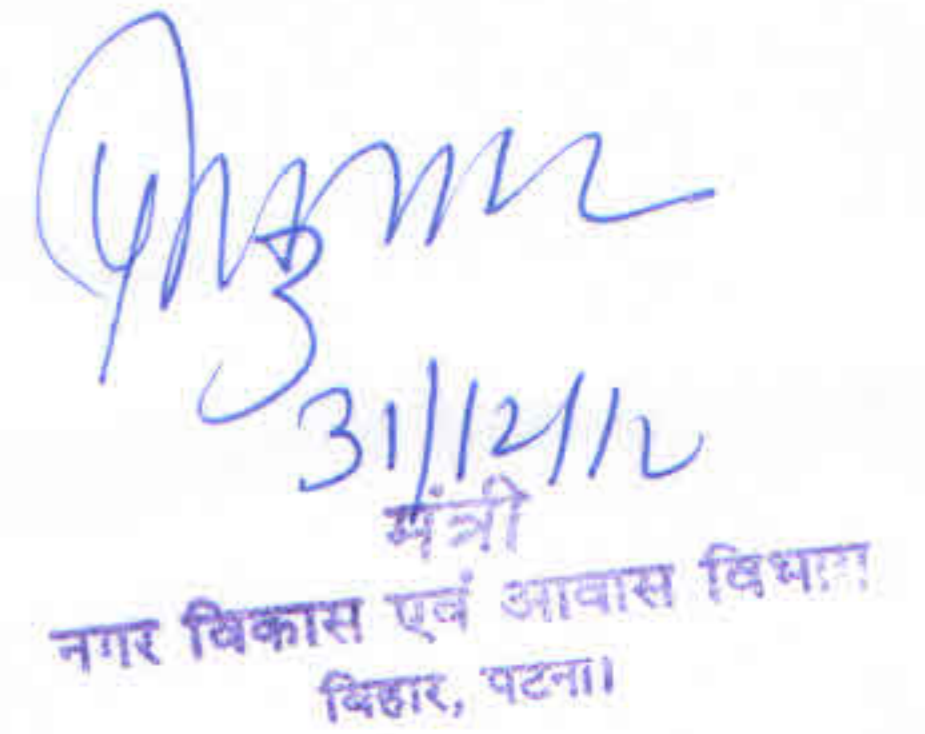 31/12/12
मंत्री
नगर विकास एवं आवास विभाग
बिहार, पटना।